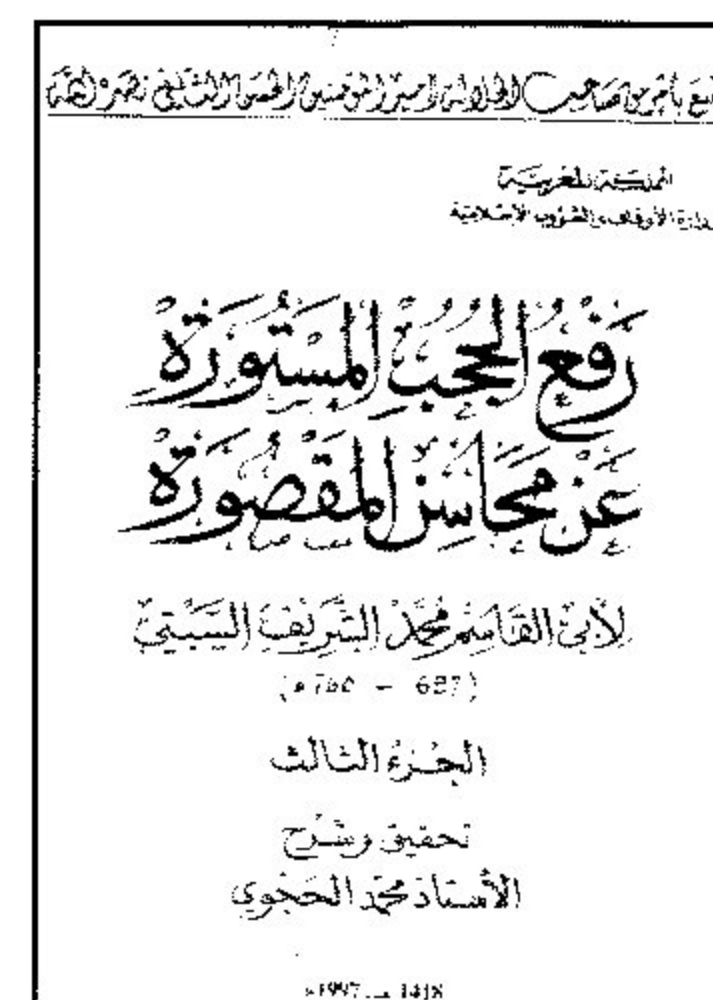 طبع بأمر من صاحب الجلالة أمير المؤمنين الحسن الثاني نصره الله
المملكة المغربية
وزارة الأوقاف والشؤون الإسلامية
رَفْعُ الحُجُبِ المَسْتُورَةِ
عَنْ مَحَاسِنِ المَقْصُورَةِ
لأبي القاسم محمد الشريف السبتي
(697 - 760 هـ)
الجزء الثالث
تحقيق وشرح
الأستاذ محمد الحجوي
1418 هـ - 1997م